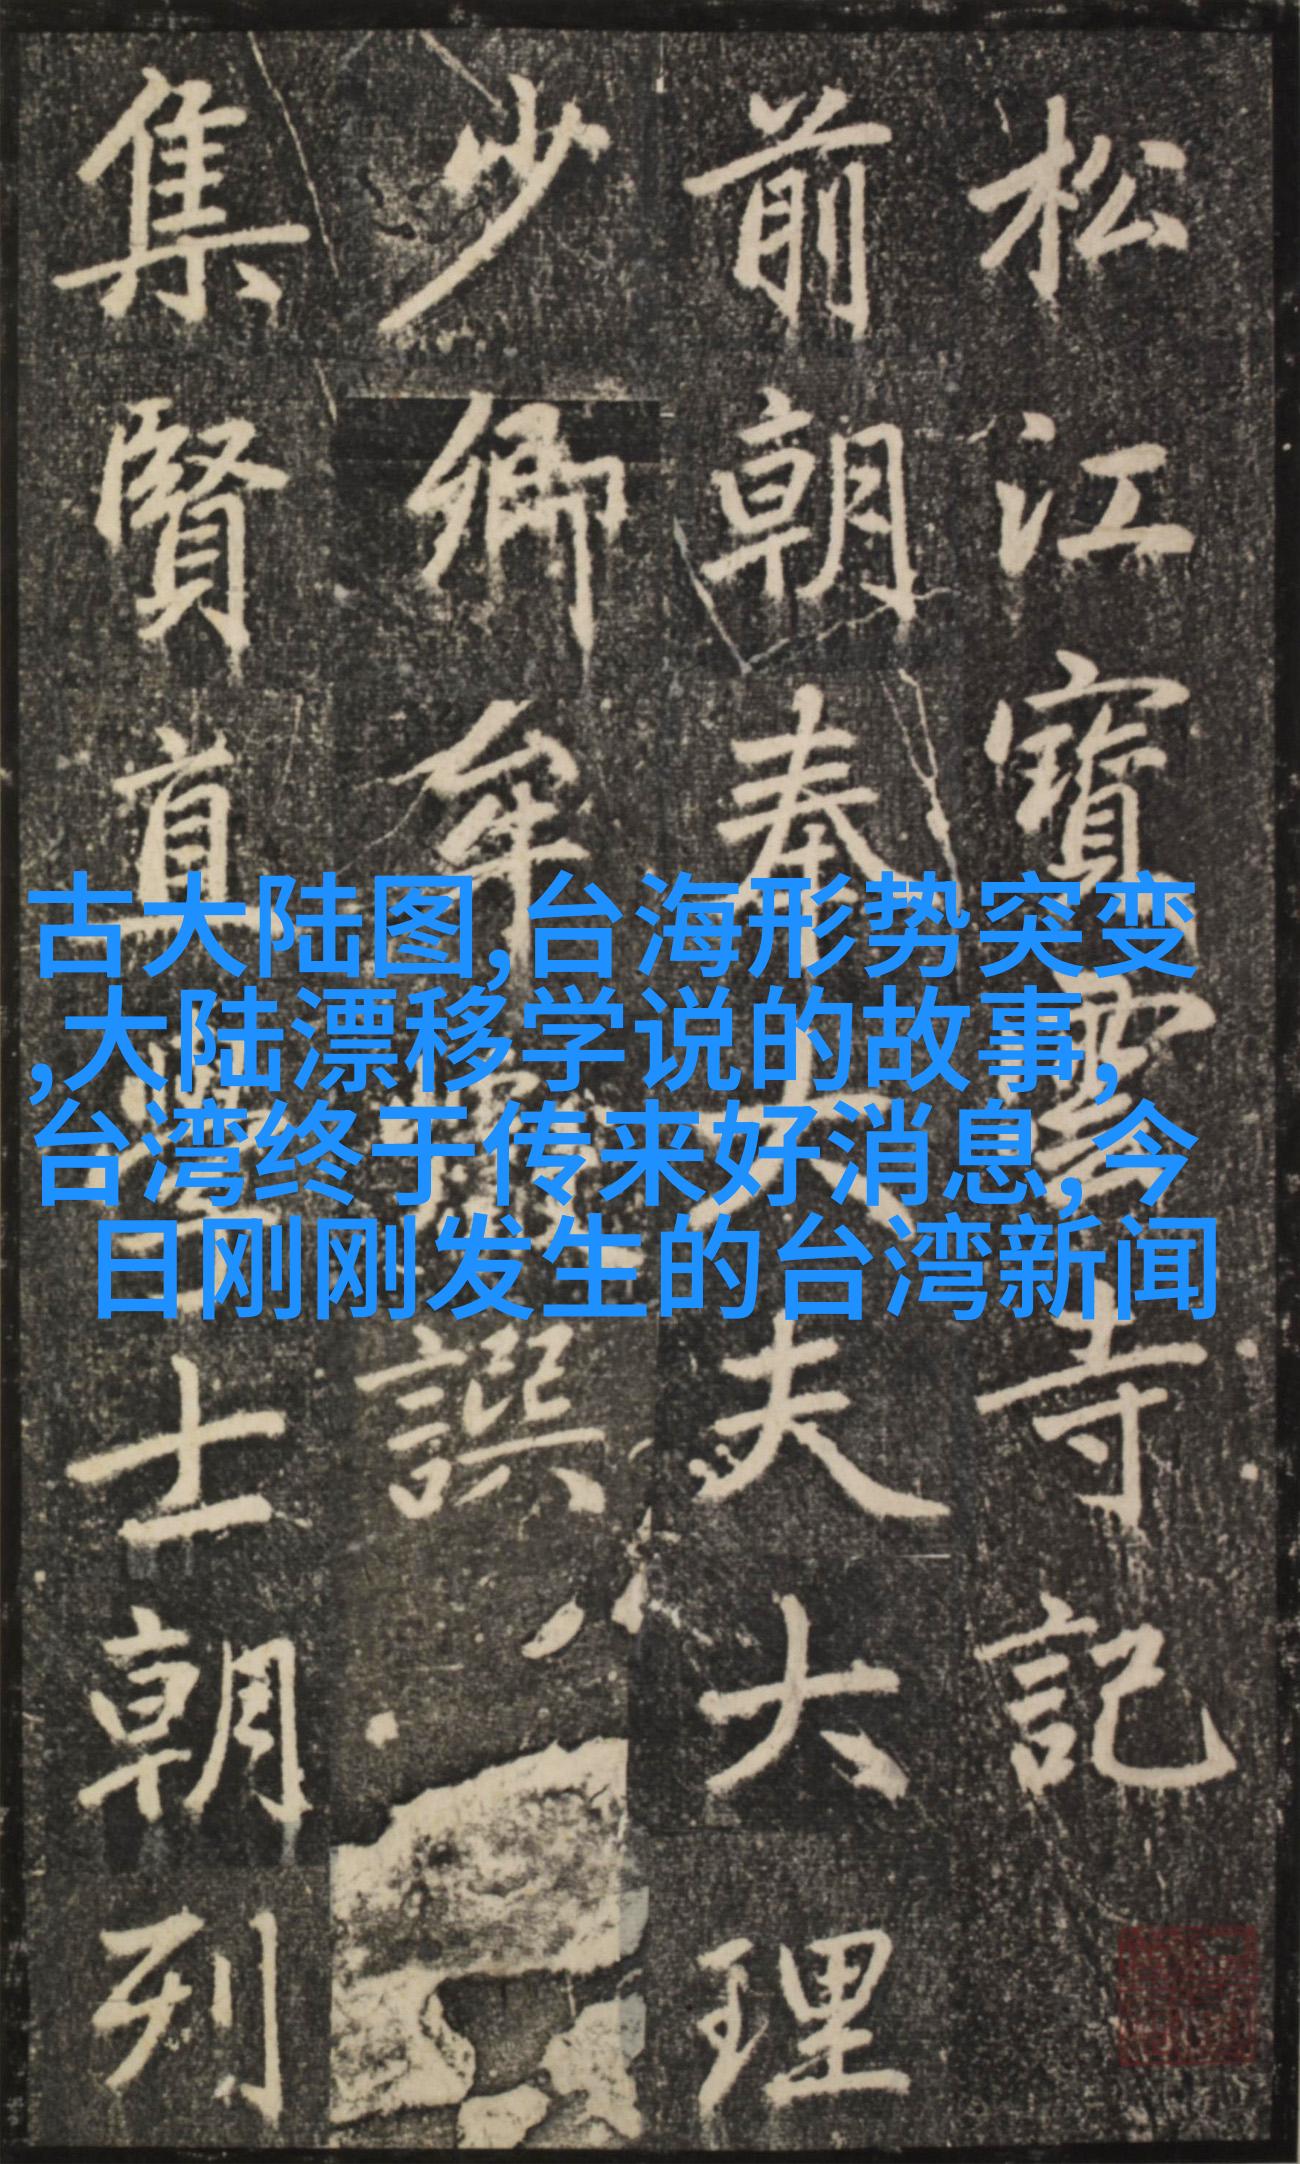 松江寶雲寺記
前朝奉大夫大理
少卿牟巘譔
集賢直學士朝列
古大陆图,台海形势突变
,大陆漂移学说的故事,
台湾终于传来好消息,今
日刚刚发生的台湾新闻